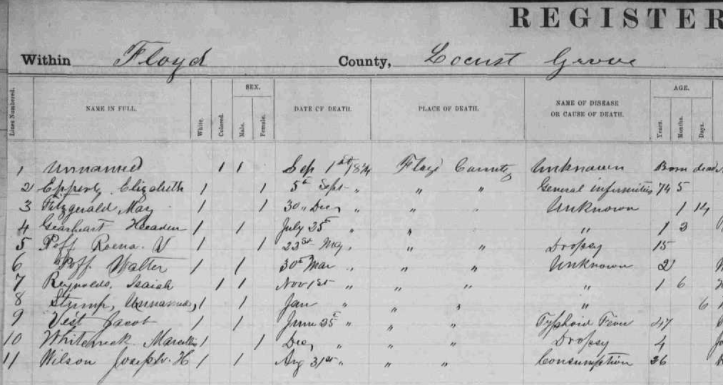 REGISTER
Within Floyd County, Locust Grove
Lines Numbered. NAME IN FULL. White. Colored. SEX. Male. Female. DATE OF DEATH. PLACE OF DEATH. NAME OF DISEASE OR CAUSE OF DEATH. AGE. Years. Months. Days.
1 Unnamed 1 1 Sep 1st 1874 Floyd County Unknown Born dead
2 Epperly Elizabeth 1 1 5th Sept " " " General infirmities 74 5
3 Fitzgerald May 1 1 30 Dec " " Unknown 1 14
4 Gearheart Headen 1 1 July 25th " " " 1 3
5 Poff Roena. V 1 1 22st May " " " Dropsy 15
6 Poff Walter 1 1 30th Mar " " " Unknown 2
7 Reynolds, Isaiah 1 1 Nov 1st " " " " 1 6
8 Stump, Unnamed, 1 1 Jan " " " 6
9 Vest Jacob 1 1 June 25th " " " Typhoid Fever 47
10 Whiteneck 1 1 Dec " " " Dropsy 4
11 Wilson Joseph. H 1 1 Aug 31st " " " Consumption 26